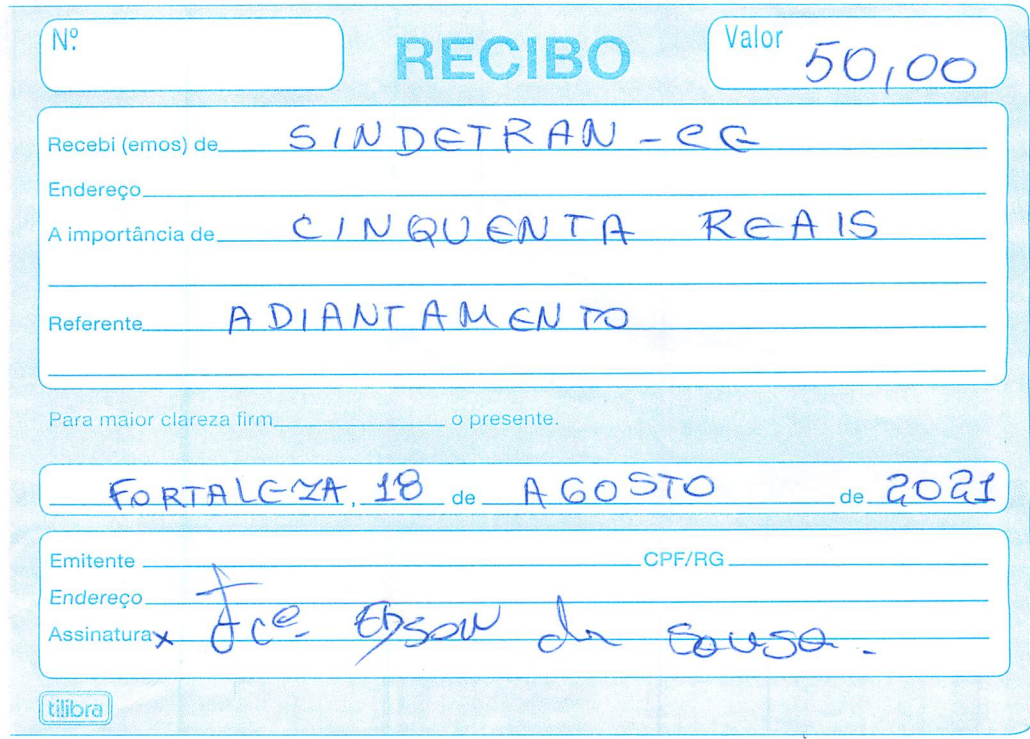 Nº
RECIBO
Valor 50,00
Recebi (emos) de SINDETRAN - CE
Endereço
A importância de CINQUENTA REAIS
Referente ADIANTAMENTO
Para maior clareza firm o presente.
FORTALEZA, 18 de AGOSTO de 2021
Emitente CPF/RG
Endereço
Assinatura x Fcº Edson de Sousa.
tilibra